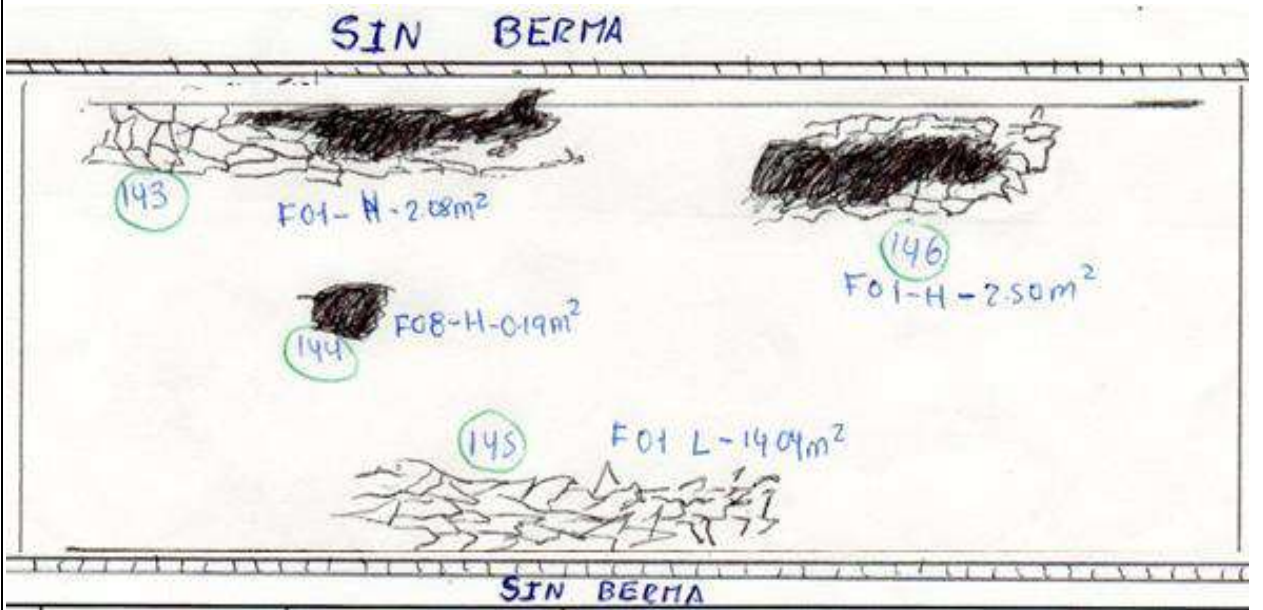 SIN BERMA
143
F01-H-2.08m²
146
F01-H-2.50m²
F08-H-0.19m²
144
145
F01 L-14.04m²
SIN BERMA